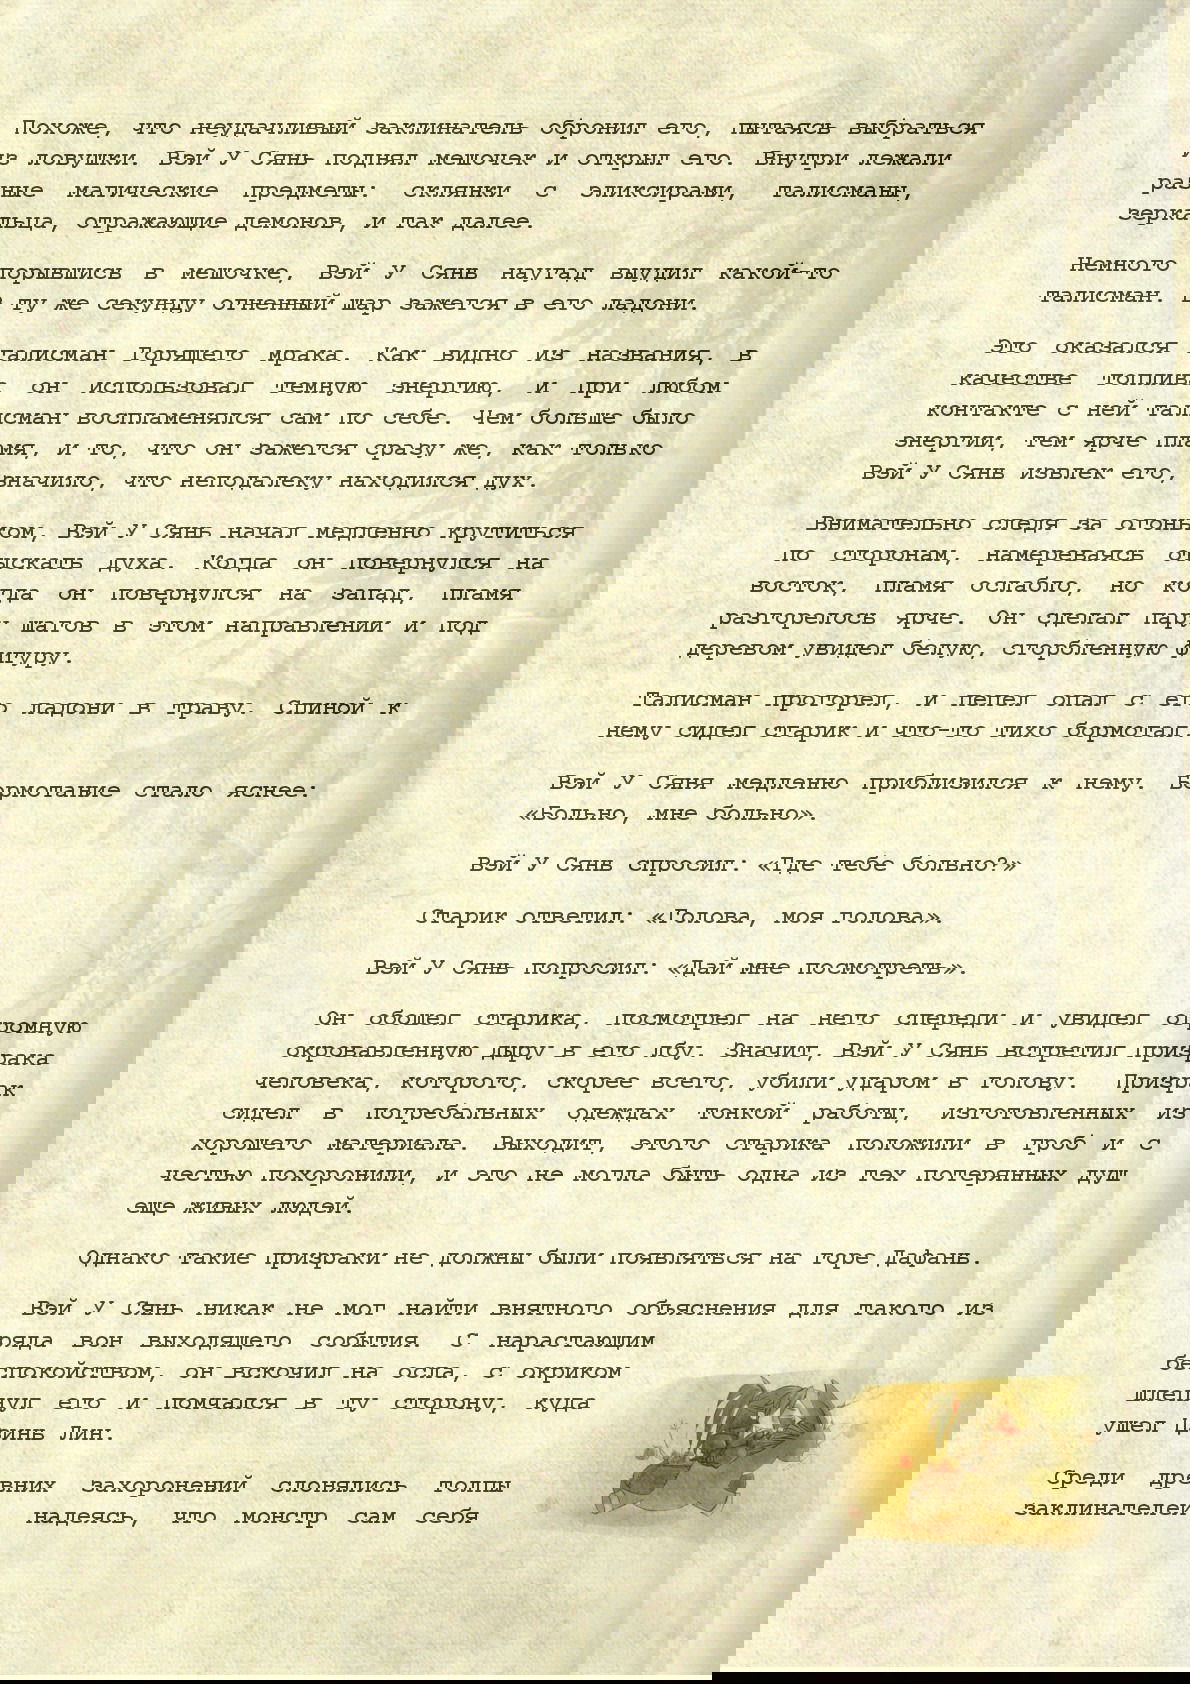 Похоже, что неудачливый заклинатель обронил его, пытаясь выбраться
из ловушки. Вэй У Сянь поднял мешочек и открыл его. Внутри лежали
разные магические предметы: склянки с эликсирами, талисманы,
зеркальца, отражающие демонов, и так далее.
Немного порывшись в мешочке, Вэй У Сянь наугад выудил какой-то
талисман. В ту же секунду огненный шар зажегся в его ладони.
Это оказался талисман Горящего мрака. Как видно из названия, в
качестве топлива он использовал темную энергию, и при любом
контакте с ней талисман воспламенялся сам по себе. Чем больше было
энергии, тем ярче пламя, и то, что он зажегся сразу же, как только
Вэй У Сянь извлек его, значило, что неподалеку находился дух.
Внимательно следя за огоньком, Вэй У Сянь начал медленно крутиться
по сторонам, намереваясь отыскать духа. Когда он повернулся на
восток, пламя ослабло, но когда он повернулся на запад, пламя
разгорелось ярче. Он сделал пару шагов в этом направлении и под
деревом увидел белую, сгорбленную фигуру.
Талисман прогорел, и пепел опал с его ладони в траву. Спиной к
нему сидел старик и что-то тихо бормотал.
Вэй У Сяня медленно приблизился к нему. Бормотание стало яснее:
«Больно, мне больно».
Вэй У Сянь спросил: «Где тебе больно?»
Старик ответил: «Голова, моя голова».
Вэй У Сянь попросил: «Дай мне посмотреть».
Он обошел старика, посмотрел на него спереди и увидел огромную
окровавленную дыру в его лбу. Значит, Вэй У Сянь встретил призрака
человека, которого, скорее всего, убили ударом в голову. Призрак
сидел в погребальных одеждах тонкой работы, изготовленных из
хорошего материала. Выходит, этого старика положили в гроб и с
честью похоронили, и это не могла быть одна из тех потерянных душ
еще живых людей.
Однако такие призраки не должны были появляться на горе Дафань.
Вэй У Сянь никак не мог найти внятного объяснения для такого из
ряда вон выходящего события. С нарастающим
беспокойством, он вскочил на осла, с окриком
шлепнул его и помчался в ту сторону, куда
ушел Цзинь Лин.
Среди древних захоронений слонялись толпы
заклинателей, надеясь, что монстр сам себя